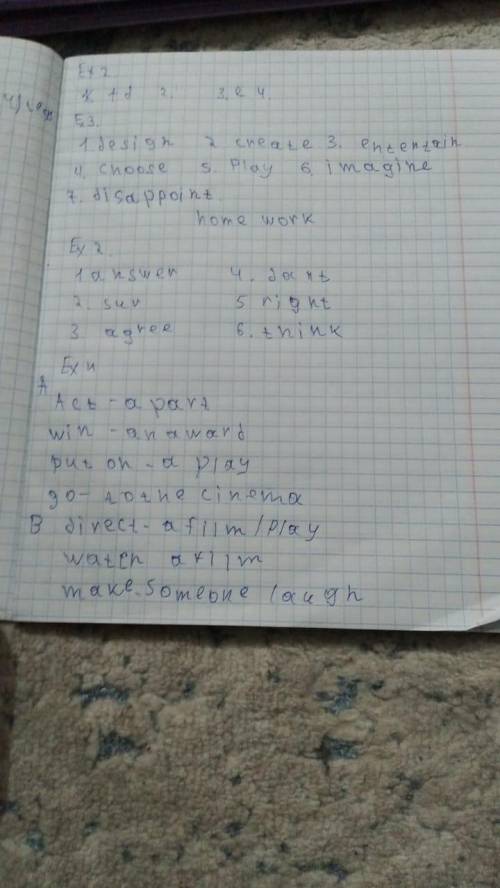 Ex 2
2. 3. e 4.
Ex3.
1 design 2 create 3. entertain
4. choose 5. Play 6. imagine
7. disappoint
home work
Ex 2.
1 answer 4. don't
2. sur 5 right
3. agree 6. think
Ex 4
A
Act - a part
win - an award
put on - a play
go - to the cinema
B direct - a film/play
watch a film
make - someone laugh